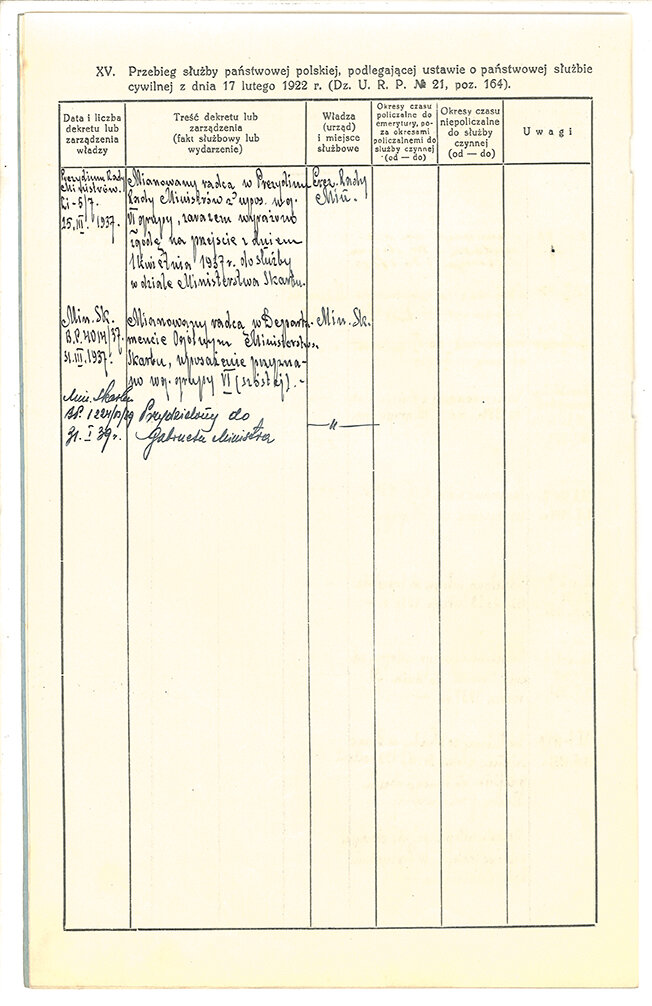 XV. Przebieg służby państwowej polskiej, podlegającej ustawie o państwowej służbie
cywilnej z dnia 17 lutego 1922 r. (Dz. U. R. P. № 21, poz. 164).
Data i liczba
dekretu lub
zarządzenia
władzy
Treść dekretu lub
zarządzenia
(fakt służbowy lub
wydarzenie)
Władza
(urząd)
i miejsce
służbowe
Okresy czasu
policzalne do
emerytury, po-
za okresami
policzalnemi do
służby czynnej
(od — do)
Okresy czasu
niepoliczalne
do służby
czynnej
(od — do)
Uwagi
Prezydium Rady
Ministrów.
25.III. 1937.
Mianowany radcą w Prezydium
Rady Ministrów z upos. wg.
VI grupy, zarazem wyrażono
zgodę na przejście z dniem
1 kwietnia 1937 r. do służby
w dziale Ministerstwa Skarbu.
Prez. Rady
Min.
Min. Sk.
B.P. 4014/37.
31.III.1937.
Mianowany radcą w Departa-
mencie Ogólnym Ministerstwa
Skarbu, uposażenie przyzna-
no wg. grupy VI (szóstej). -
Min. Sk.
Min. Skarbu
31. I 39 r.
Przydzielony do
Gabinetu Ministra
— " —